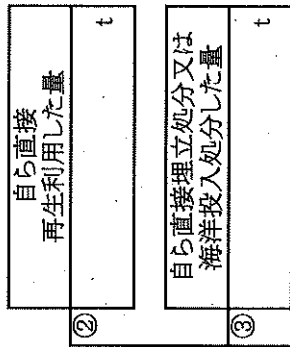 ②
自ら直接
再生利用した量
t
③
自ら直接埋立処分又は
海洋投入処分した量
t